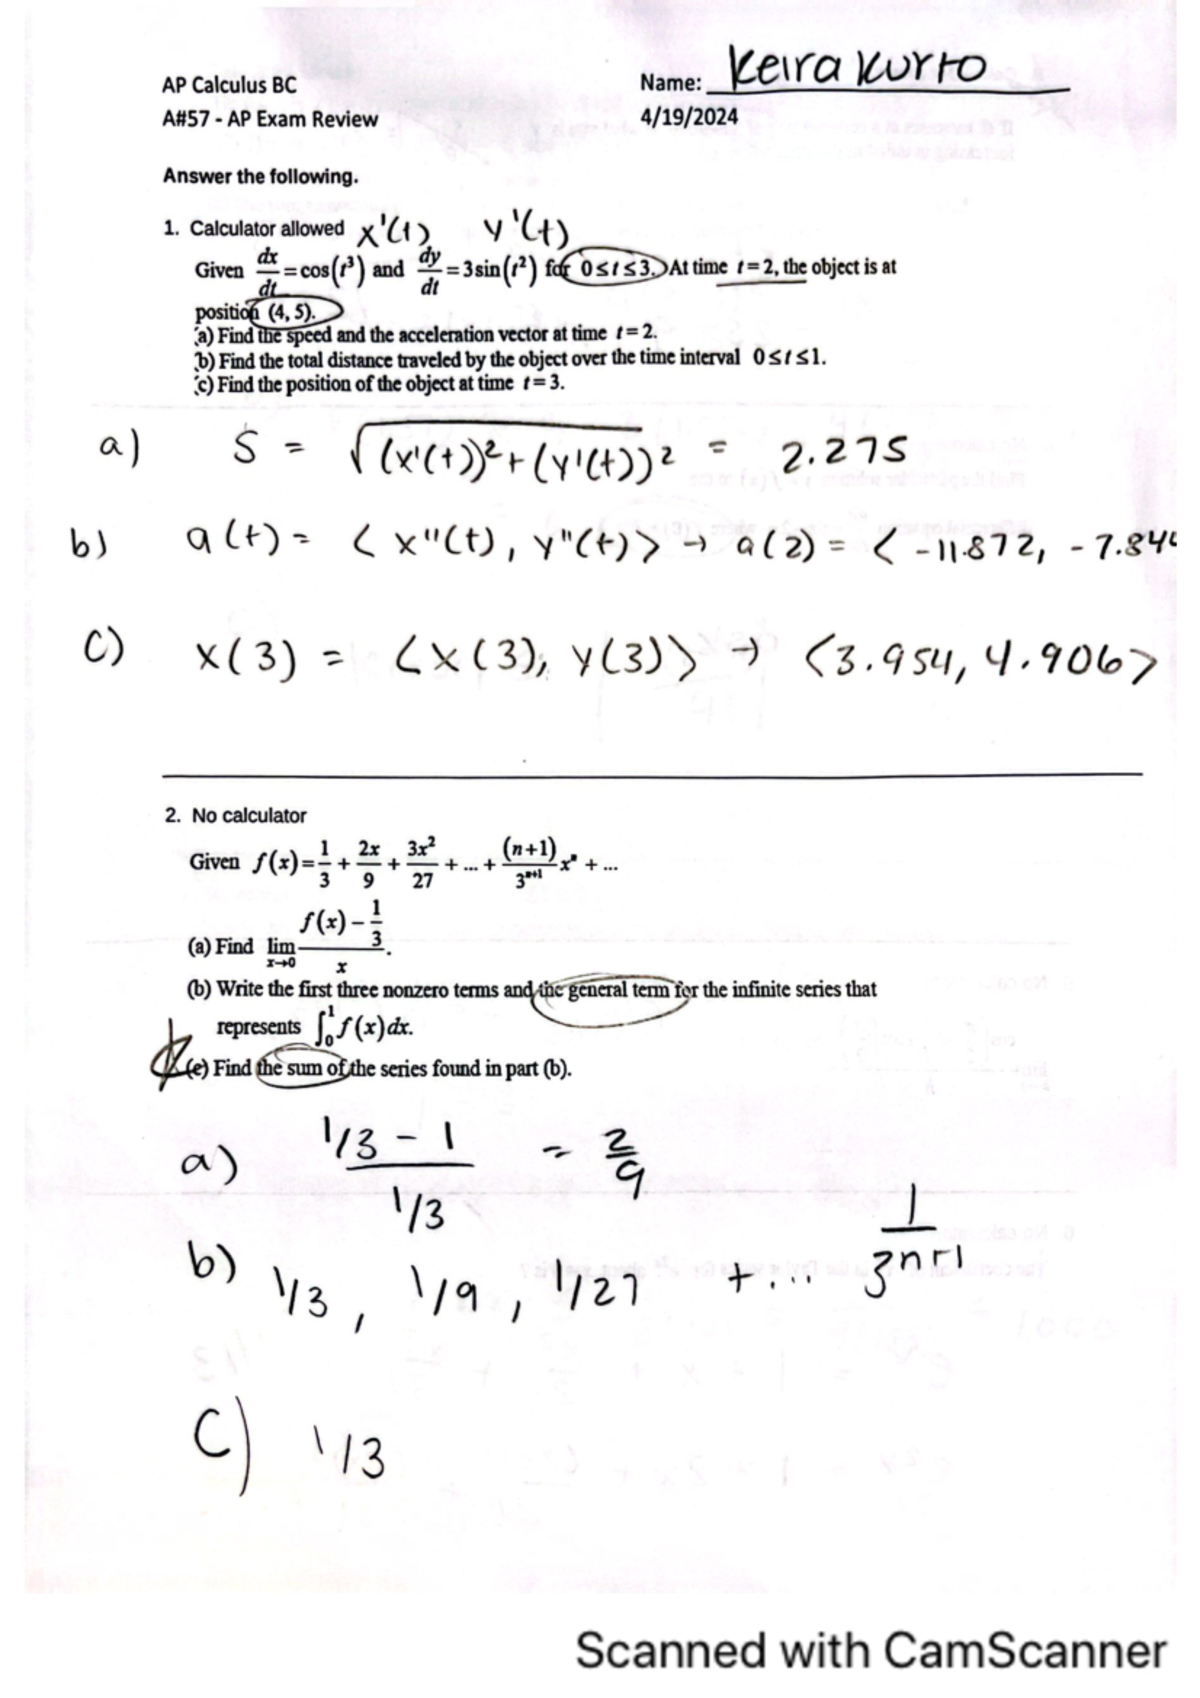 AP Calculus BC
Name: Keira Kurto
A#57 - AP Exam Review
4/19/2024
Answer the following.
1. Calculator allowed x'(t) y'(t)
Given dx/dt = cos(t³) and dy/dt = 3sin(t²) for 0≤t≤3. At time t=2, the object is at
position (4, 5).
(a) Find the speed and the acceleration vector at time t=2.
(b) Find the total distance traveled by the object over the time interval 0≤t≤1.
(c) Find the position of the object at time t=3.
a) S = √(x'(t))²+(y'(t))² = 2.275
b) a(t) = < x"(t), y"(t) > → a(2) = < -11.872, -7.844
c) x(3) = <x(3), y(3)> → <3.954, 4.906>
2. No calculator
Given f(x) = 1/3 + 2x/9 + 3x²/27 + ... + (n+1)/3ⁿ⁺¹ xⁿ + ...
(a) Find lim x→0 (f(x) - 1/3)/x.
(b) Write the first three nonzero terms and the general term for the infinite series that
represents ∫₀¹ f(x)dx.
(c) Find the sum of the series found in part (b).
a) (1/3 - 1)/(1/3) = 2/9
b) 1/3, 1/9, 1/27 + ... 1/3ⁿ⁺¹
c) 1/3
Scanned with CamScanner